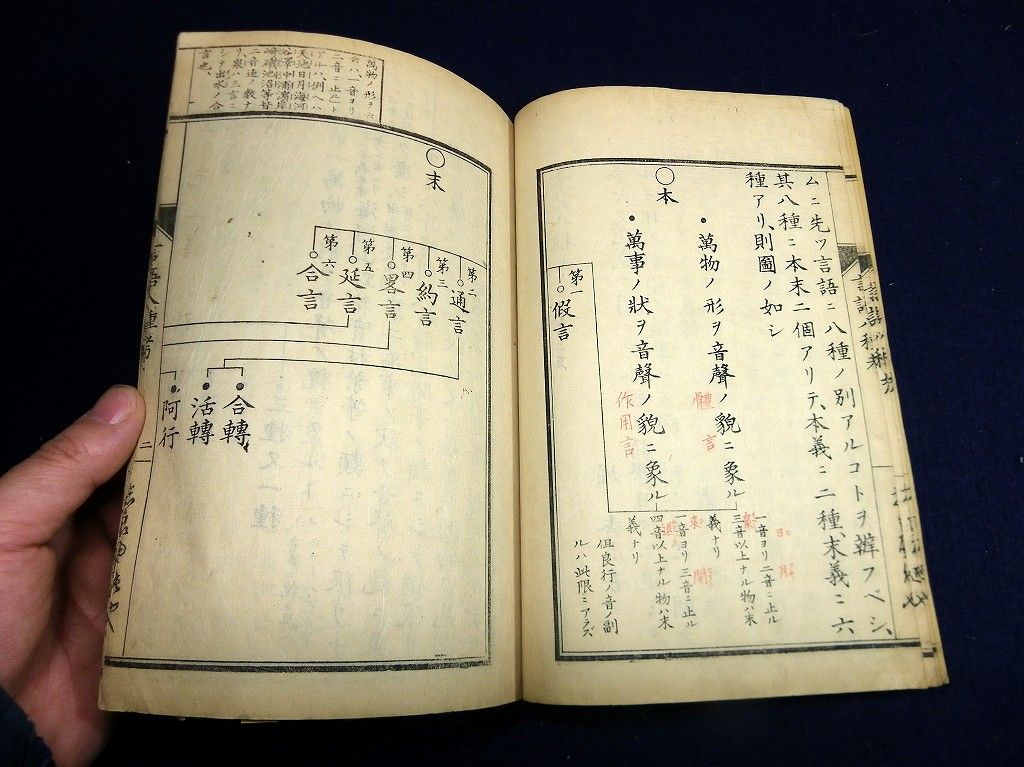 ムニ先ツ言語ニ八種ノ別アルコトヲ辯フベシ、
其八種ニ本末二個アリテ、本義ニ二種、末義ニ六
種アリ、則圖ノ如シ
〇本
•萬物ノ形ヲ音聲ノ貌ニ象ル
體言
一音ヨリ二音ニ止ル
三音以上ナル物ハ末
義ナリ
•萬事ノ狀ヲ音聲ノ貌ニ象ル
作用言
一音ヨリ三音ニ止ル
四音以上ナル物ハ末
義ナリ
但良行ノ音ノ副
ルハ此限ニアラズ
第一
假言
萬物ノ形ヲ
云ハ、一音ヨリ
二音ニ止ルト
アルハ、例ヘハ
天地日月海河
谷澤中浦濱岸
崎磯池沼等皆
二音迄ノ數ナ
リ、泉ハ三言ニ
シテ出水ノ合
言也、
〇末
第二
通言
第三
約言
第四
畧言
第五
延言
第六
合言
•合轉
•活轉
•阿行
二